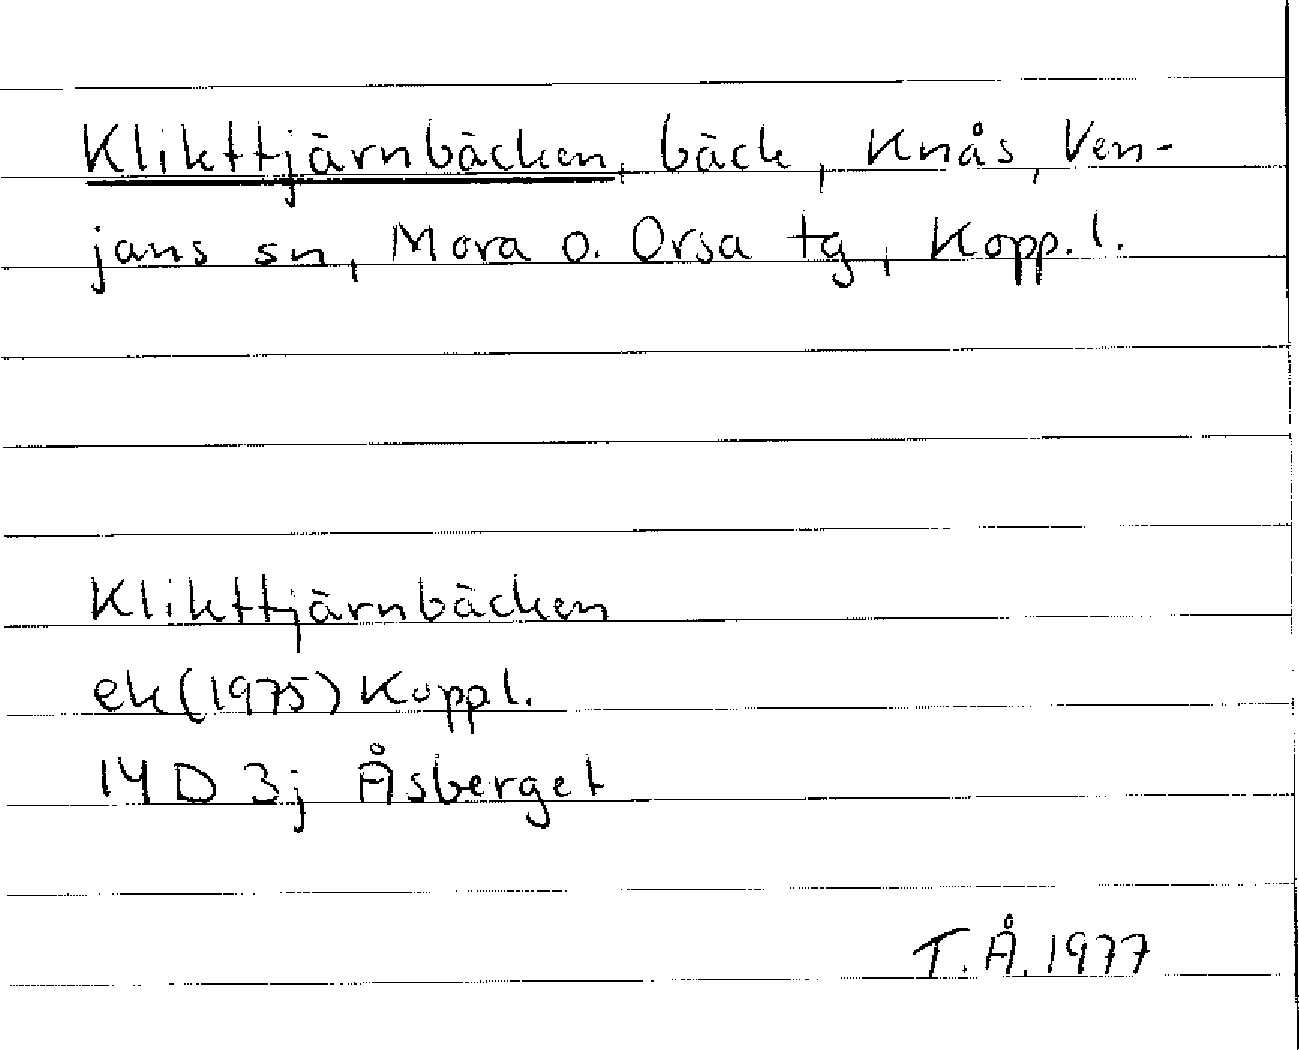 Klikttjärnbäcken, bäck, Knås, Ven-
jans sn, Mora o. Orsa tg, Kopp. l.
Klikttjärnbäcken
ek (1975) Koppl.
14 D 3j Åsberget
T. Å. 1977